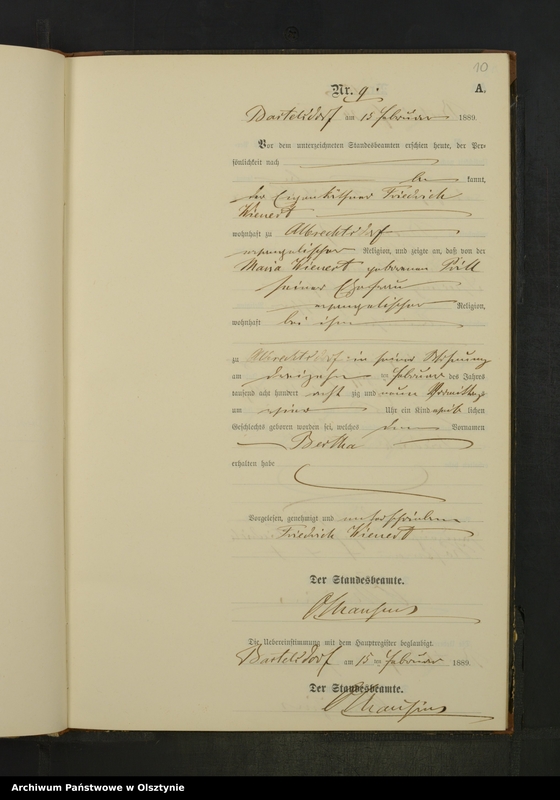 10
Nr. 9.
A.
Bartelsdorf am 15 Februar 1889.
Vor dem unterzeichneten Standesbeamten erschien heute, der Per-
sönlichkeit nach
kannt,
der Eigenkäthner Friedrich
Kienert
wohnhaft zu Albrechtsdorf
evangelischer Religion, und zeigte an, daß von der
Maria Kienert geborenen
seiner Ehefrau
evangelischer Religion,
wohnhaft bei ihm
zu Albrechtsdorf in seiner Wohnung
am dreizehn ten Februar des Jahres
tausend acht hundert acht zig und neun Vormittags
um Uhr ein Kind weib lichen
Geschlechts geboren worden sei, welches den Vornamen
Bertha
erhalten habe
Vorgelesen, genehmigt und unterschrieben
Friedrich Kienert
Der Standesbeamte.
Die Uebereinstimmung mit dem Hauptregister beglaubigt.
Bartelsdorf am 15 ten Februar 1889.
Der Standesbeamte.
Archiwum Państwowe w Olsztynie